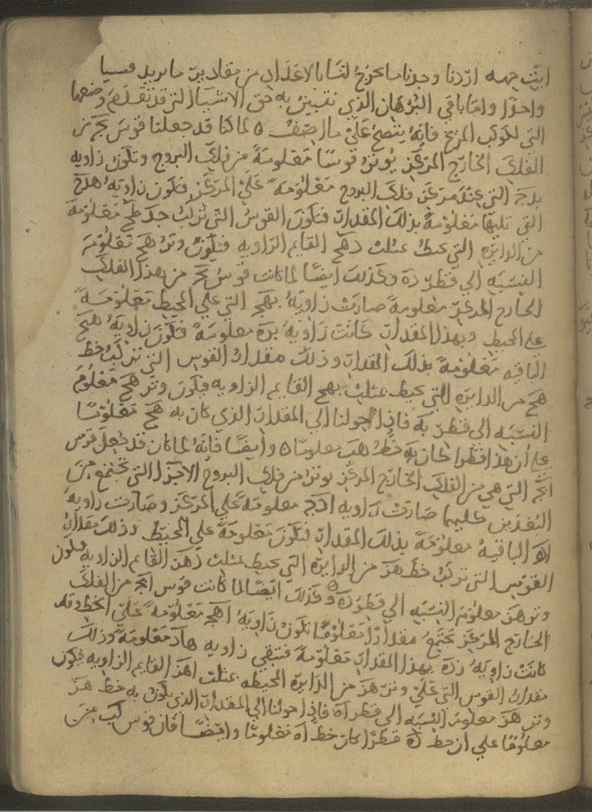 ايت جهه اردنا وجدنا ما يخرج لنا بالاعداد من مقادير ما نريد قسيا
واحدا واما باقي البرهان الذي نتبين به حق الاشيا التي قد تقدم وضعها
التي لكوكب المريخ فانه يتضح على حال اصف ه لما كنا قد جعلنا قوس بج من
الفلك الخارج المركز يوتر قوسا معلومة من فلك البروج وتكون زاويه
بدج التي عند مركز فلك البروج معلومة على المركز فتكون زاويه هدج
التي تليها معلومة بذلك المقدار فتكون القوس التي تركب خط هج معلومة
من الدايره التي تحيط بمثلث دهج القايم الزاويه فتكون وتر هج معلومة
النسبه الى قطر ده وكذلك ايضا لما كانت قوس بج من هذا الفلك
الخارج المركز معلومة صارت زاويه بهج التي على المحيط معلومة
على المحيط وبهذا المقدار كانت زاويه بده معلومة فتكون زاويه هبج
الباقيه معلومة بذلك المقدار وذلك مقدار القوس التي تركب خط
هج من الدايره التي تحيط بمثلث بهج القايم الزاويه فيكون وتر هج معلوم
النسبه الى قطر به فاذا حولنا الى المقدار الذي كان به هج معلوما
على ان هذا قطرا كان به خط هب معلوما ه وايضا فانه لما كان قد جعل قوس
ابج التي هي من الفلك الخارج المركز يوتر من فلك البروج الاجزا التي تجتمع من
البعدين كليهما صارت زاويه ادج معلومة على المركز وصارت زاويه
اده الباقيه معلومة بذلك المقدار فتكون معلومة على المحيط وذلك مقدار
القوس التي تركب خط هز من الدايره التي تحيط بمثلث دهز القايم الزاويه فيكون
وتر هز معلوم النسبه الى قطر ده وكذلك ايضا لما كانت قوس ابج من الفلك
الخارج المركز تجتمع مقدارا معلوما تكون زاويه اهج معلومة على المحيط وقد
كانت زاويه زده بهذا المقدار معلومة فتبقي زاويه هاد معلومة وذلك
مقدار القوس التي على وتر هز من الدايره المحيطه بمثلث اهز القايم الزاويه فيكون
وتر هز معلوم النسبه الى قطر اه فاذا حولنا الى المقدار الذي يكون به خط هز
معلوما على ان خط ده قطرا كان خط اه معلوما وايضا فان قوس اب من